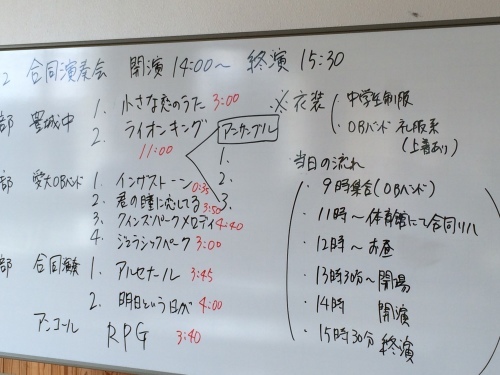 2 合同演奏会 開演 14:00～ 終演 15:30
部 豊城中 1. 小さな恋のうた 3:00
2. ライオンキング 11:00
アンサンブル
1.
2.
3.
部 愛大OBバンド 1. インヴストーン 0:35
2. 君の瞳に恋してる 3:50
3. クインズパークメロディ 4:40
4. ジュラシックパーク 3:00
部 合同演奏 1. アルセナール 3:45
2. 明日という日が 4:00
アンコール RPG 3:40
※衣装 中学生制服
OBバンド 礼服系
(上着あり)
当日の流れ
・9時集合(OBバンド)
・11時～体育館にて合同リハ
・12時～お昼
・13時30分～開場
・14時 開演
・15時30分 終演